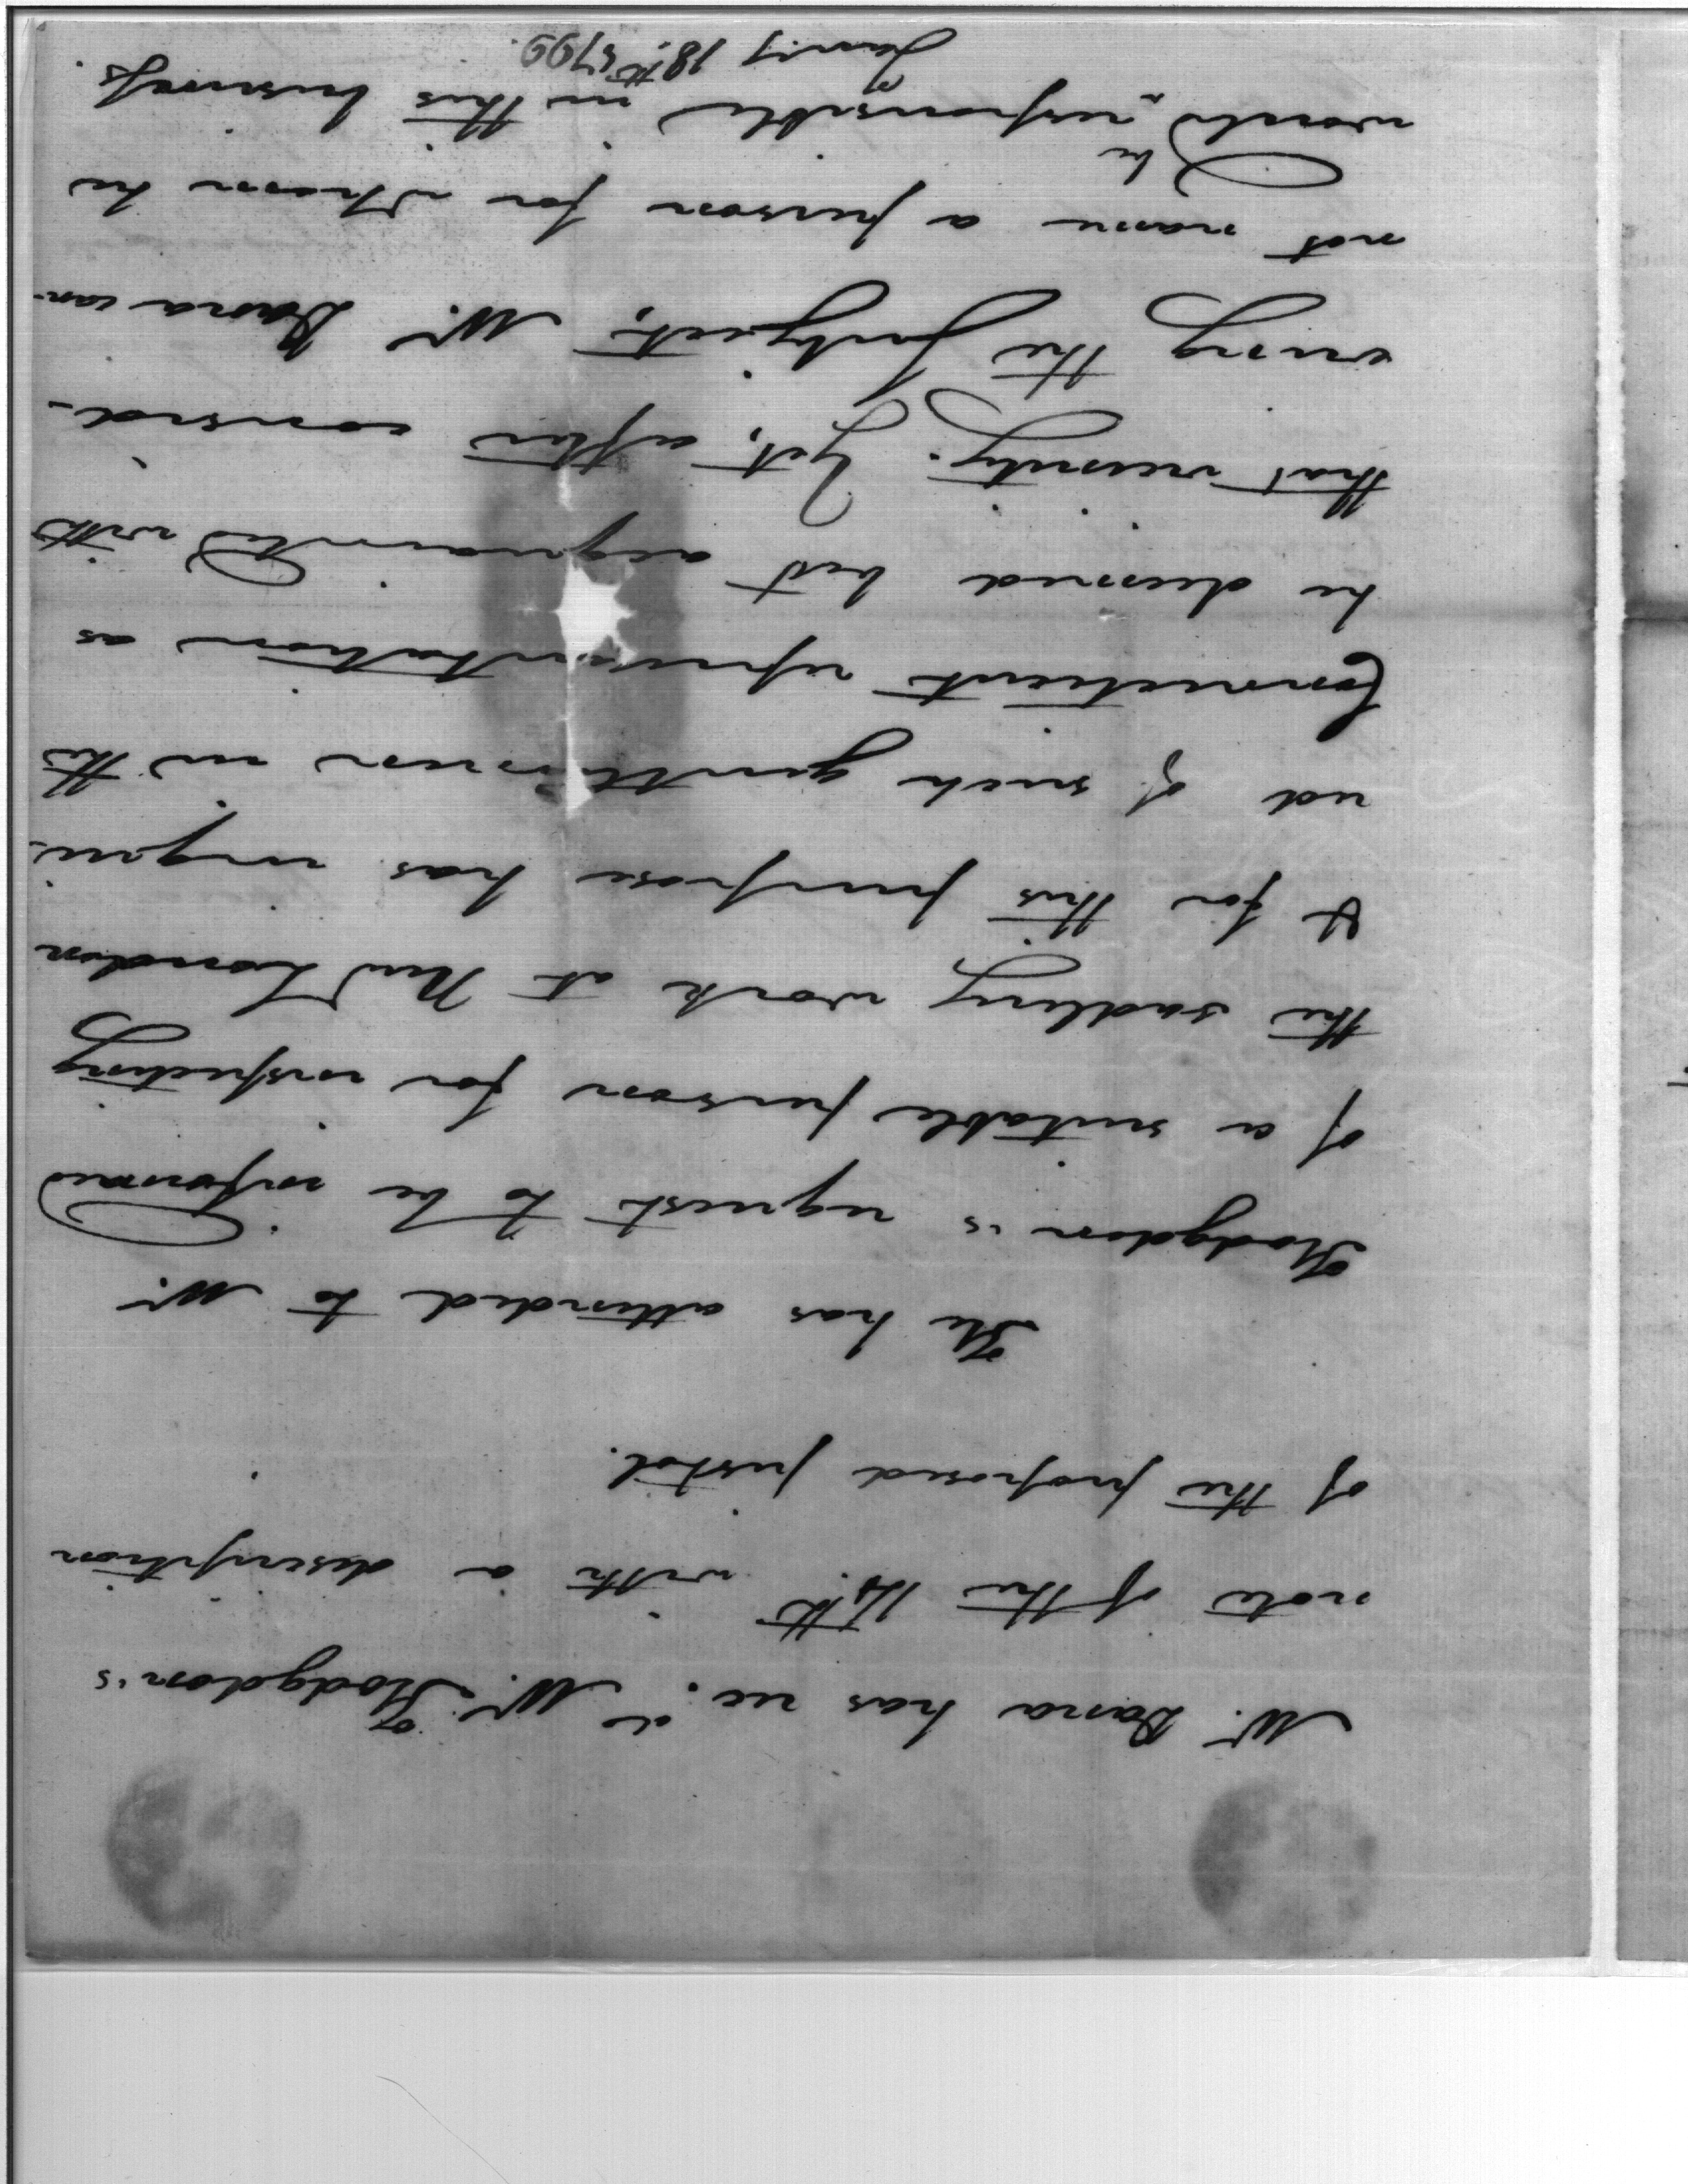 Mr. Dana has rec.d Mr. Hodgdon's
note of the 14th. with a description
of the proposed pistol.
He has attended to Mr.
Hodgdon's request to be informed
of a suitable person for inspecting
the sadlery work at New London
& for this purpose has inquir-
ed of such gentlemen in the
Connecticut representation as
he deemed best acquainted with
that vicinity. Yet, after consid-
ering the subject, Mr. Dana can-
not name a person for whom he
would be responsible in this business.
Jan.y 18th. 1799